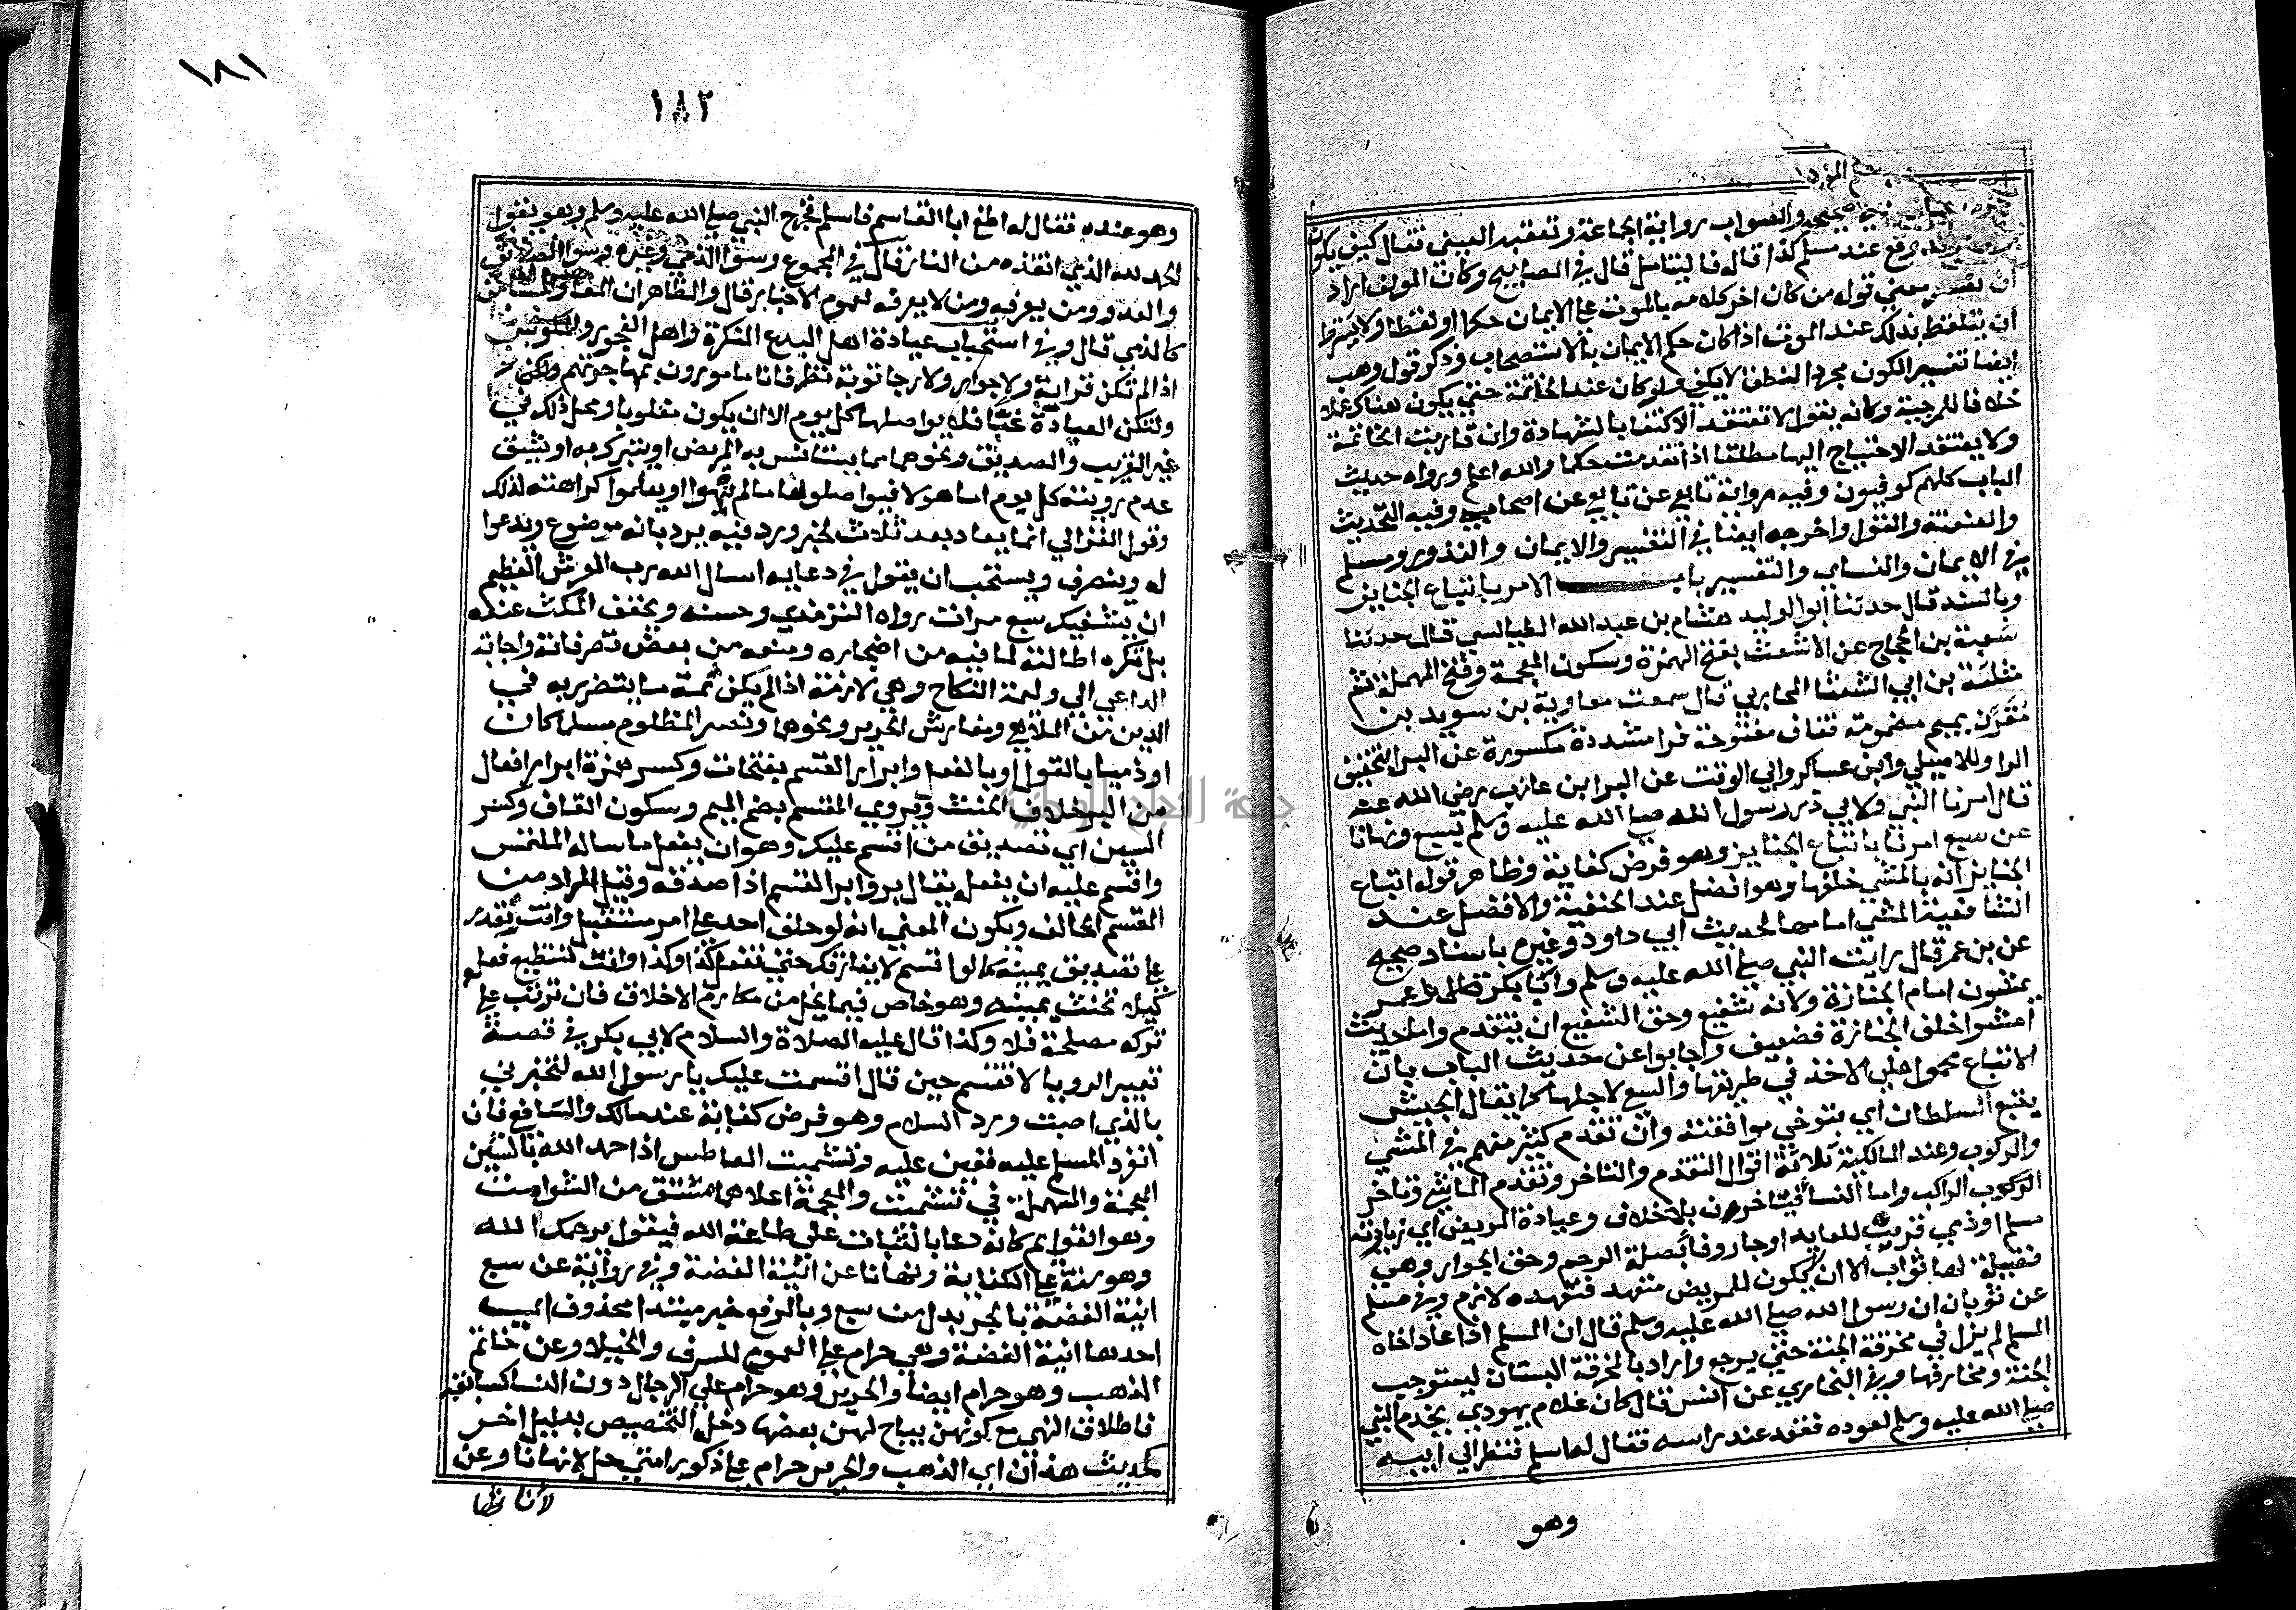 والصواب رواية الجماعة وتعقبه العيني فقال كيف يكون
يرفع عند مسلم كذا قاله فاليتامل قال في المصابيح وكان المولف اراد
ان يفسر معني قوله من كان اخر كلامه بالموت علي الايمان حكما او لفظا ولا يشترط
ان يتلفظ بذلك عند الموت اذا كان حكم الايمان بالاستصحاب وذكر قول وهب
ايضا تفسير الكون مجرد النطق لا يكفي ولو كان عند الخاتمة حتي يكون هناك عمل
خلافا للمرجية وكانه يقول لا تعتقد الاكتفا بالشهادة وان قاربت الخاتمة
ولا يعتقد الاحتياج اليها مطلقا اذا تقدمت حكما والله اعلم ورواه حديث
الباب كلهم كوفيون وفيه رواية تابعي عن تابعي عن اصحابي وفيه التحديث
والعنعنة والقول واخرجه ايضا في التفسير والايمان والنذور ومسلم
في الايمان والنساي والتفسير باب الامر باتباع الجنايز
وبالسند قال حدثنا ابو الوليد هشام بن عبد الله الطيالسي قال حدثنا
شعبة بن الحجاج عن الاشعث بفتح الهمزة وسكون المعجمة وفتح المهملة ثم
مثلثة بن ابي الشعثا المحاربي قال سمعت معاوية بن سويد بن
مقرن بميم مضمومة فقاف مفتوحة فرا مشددة مكسورة عن البرا بتخفيف
الرا وللاصيلي وابن عساكر وابي الوقت عن البرا بن عازب رضي الله عنه
قال امرنا النبي ولابي ذر رسول الله صلي الله عليه وسلم بسبع ونهانا
عن سبع امرنا باتباع الجنايز وهو فرض كفاية وظاهر قوله اتباع
الجنايز انه بالمشي خلفها وهو افضل عند الحنفية والافضل عند
الشافعية المشي امامها لحديث ابي داود وغيره باسناد صحيح
عن بن عمر قال رايت النبي صلي الله عليه وسلم وابا بكر وعمر
يمشون امام الجنازة ولانه شفيع وحق الشفيع ان يتقدم واما حديث
امشوا خلف الجنازة فضعيف واجابوا عن حديث الباب بان
الاتباع محمول علي الاخذ في طريقها والسعي لاجلها كما يقال الجيش
يتبع السلطان اي يتوخي موافقته وان تقدم كثير منهم في المشي
والركوب وعند المالكية ثلاثة اقوال التقدم والتاخر وتقدم الماشي وتاخر
الركوب الراكب واما النسا فيتاخرن بلا خلاف وعيادة المريض اي زيارته
مسلم او ذمي قريب للعايد او جار وفا بصلة الرحم وحق الجوار وهي
فضيلة لها ثواب الا ان لا يكون للمريض متعهد فتعهده لازم وفي مسلم
عن ثوبان ان رسول الله صلي الله عليه وسلم قال ان المسلم اذا عاد اخاه
المسلم لم يزل في مخرفة الجنة حتي يرجع واراد بالمخرفة البستان يستوجب
الجنة ومخارفها وفي البخاري عن انس قال كان غلام يهودي يخدم النبي
صلي الله عليه وسلم فعاده فقعد عند راسه فقال له اسلم فنظر الي ابيه
وهو
١٨١
١٨٢
وهو عنده فقال له اطع ابا القاسم فاسلم فخرج النبي صلي الله عليه وسلم وهو يقول
الحمد لله الذي انقذه من النار قال في المجموع وسوا الذمي وغيره وسوا الصديق
والعدو ومن يعرفه ومن لا يعرفه لعموم الاخبار قال والظاهر ان المعاهد والمستامن
كالذمي قال وفي استحباب عيادة اهل البدع المنكرة واهل الفجور والمكوس
اذا لم تكن قرابة ولا جوار ولا رجا توبة نظر فانا مامورون بمهاجرتهم
ولتكن العيادة غبا فلا يواصلها كل يوم الا ان يكون مغلوبا ومحل ذلك في
غير القريب والصديق ونحوهما مما يستانس به المريض او يتبرك به او يشق
عدم رويته كل يوم اما هولا فيواصلونها ما لم ينهوا او يعلموا كراهته لذلك
وقول الغزالي انما يعاد بعد ثلاث لخبر ورد فيه يرد بانه موضوع ويدعوا
له وينصرف ويستحب ان يقول في دعايه اسال الله رب العرش العظيم
ان يشفيك سبع مرات رواه الترمذي وحسنه ويخفف المكث عنده
بل تكره اطالته لما فيه من اضجاره ومنعه من بعض تصرفاته واجابة
الداعي الي وليمة النكاح وهي لازمة اذا لم يكن ثمة ما يتضرر به في
الدين من الملاهي ومفارش الحرير ونحوهما ونصر المظلوم مسلما كان
او ذميا بالقول او بالفعل وابرار القسم بفتحات وكسر همزة ابرار افعال
من البر خلاف الحنث ويروي المقسم بضم الميم وسكون القاف وكسر
السين اي تصديق من اقسم عليك وهو ان يفعل ما ساله الملتمس
واقسم عليه ان يفعله يقال بر وابر القسم اذا صدقه وقيل المراد من
المقسم الحالف ويكون المعني انه لو حلف احد علي امر مستقبل وانت تقدر
علي تصديق يمينه كما لو اقسم لا يفارقك حتي تفعل كذا وكذا وانت تستطيع فعله
كيلا تحنث يمينه وهو خاص فيما يحل من مكارم الاخلاق فان ترتب علي
تركه مصلحة فلا وكذا قال عليه الصلاة والسلام لابي بكر في قصة
تعبير الرويا لا تقسم حين قال اقسمت عليك يا رسول الله لتخبرني
بالذي اصبت ورد السلام وهو فرض كفاية عند مالك والشافعي فان
انفرد المسلم عليه تعين عليه وتشميت العاطس اذا حمد الله بالشين
المعجمة والمهملة في تشميت والمعجمة اعلاهما مشتق من الشوامت
وهو القوايم كانه دعا بالثبات علي طاعة الله فيقول يرحمك الله
وهو سنة علي الكفاية ونهانا عن انية الفضة وفي رواية عن سبع
انية الفضة بالجر بدل من سبع وبالرفع خبر مبتدا محذوف اي
احدها انية الفضة وهي حرام علي العموم للسرف والخيلا وعن خاتم
الذهب وهو حرام ايضا والحرير وهو حرام علي الرجال دون النسا كسابقه
فاطلاق النهي مع كونهن يباح لهن بعضها دخله التخصيص بدليل اخر
كحديث هذان اي الذهب والحرير حرام علي ذكور امتي حل لاناثها وعن
لاناثها
جامعة النجاح الوطنية